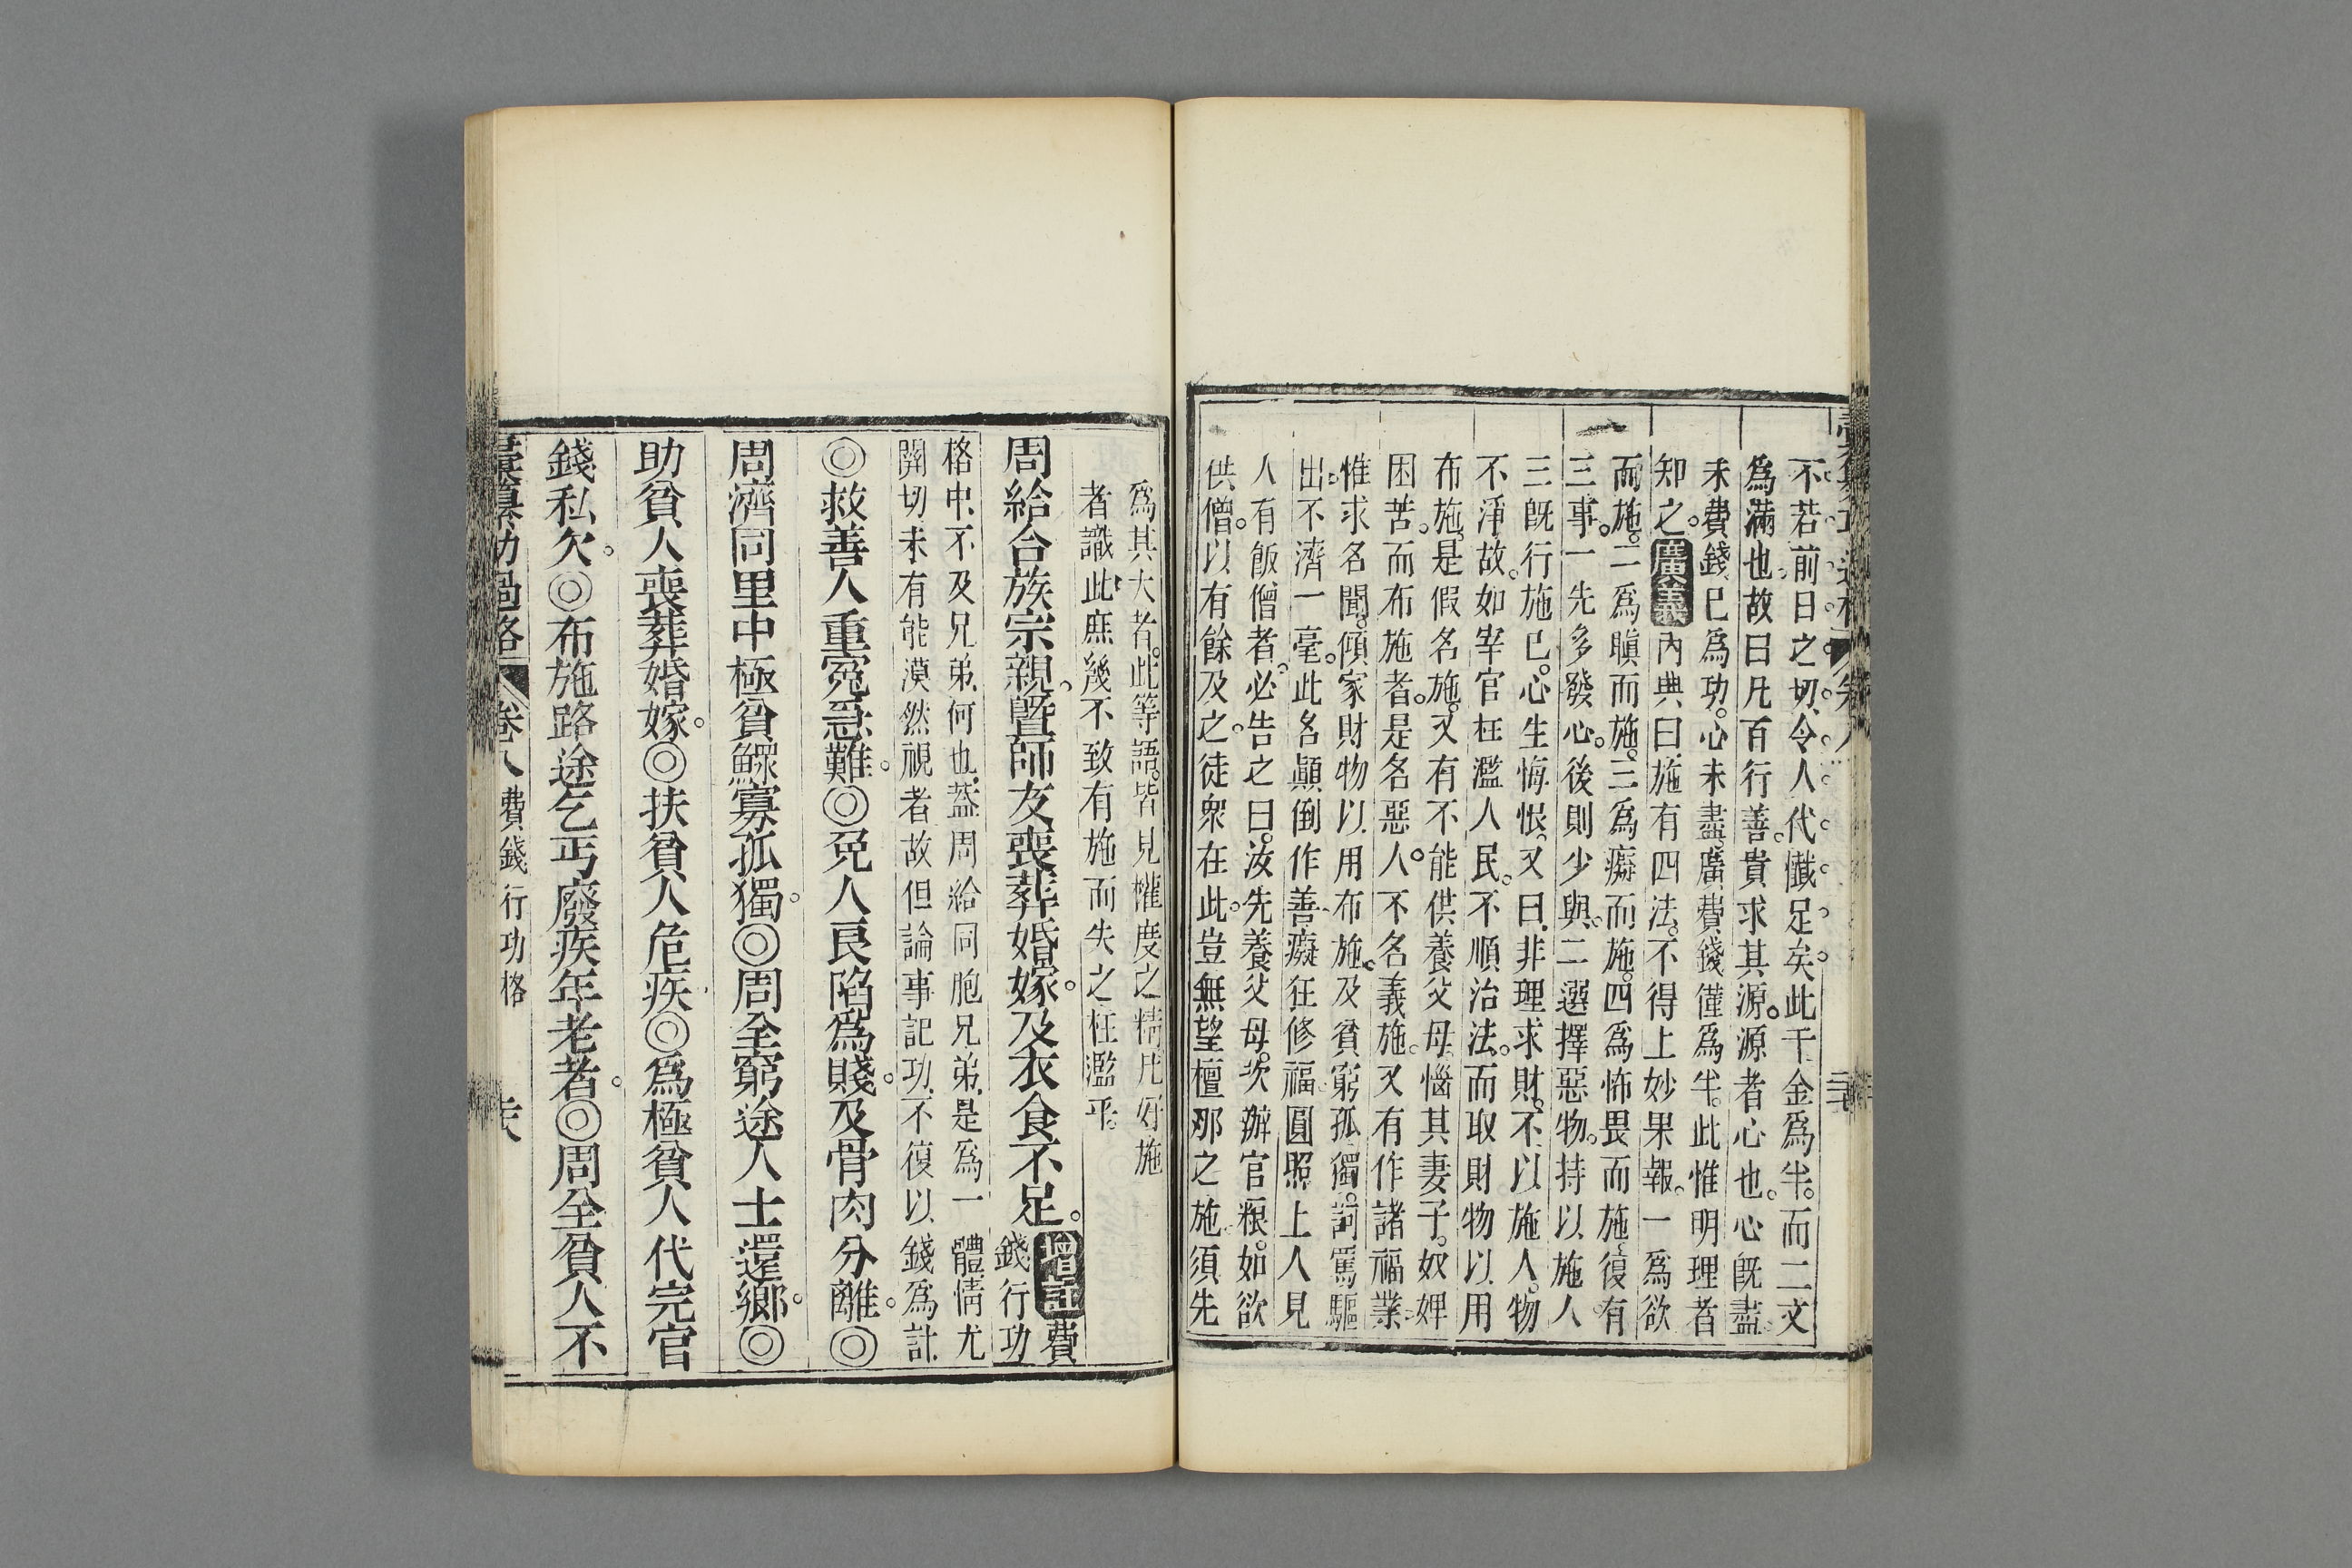 不若前日之切。令人代懺足矣。此千金爲半。而二文
爲滿也。故曰凡百行善。貴求其源。源者心也。心既盡。
未費錢。已爲功。心未盡。廣費錢。僅爲半。此惟明理者
知之。廣義內典曰施有四法。不得上妙果報。一爲欲
而施。二爲瞋而施。三爲癡而施。四爲怖畏而施。復有
三事。一先多發心。後則少與。二選擇惡物。持以施人。
三既行施已。心生悔恨。又曰。非理求財。不以施人。物
不淨故。如宰官枉濫人民。不順治法。而取財物以用
布施。是假名施。又有不能供養父母。惱其妻子。奴婢
困苦。而布施者。是名惡人。不名義施。又有作諸福業。
惟求名聞。傾家財物以用布施。及貧窮孤獨。訶罵驅
出。不濟一毫。此名顚倒作善。癡狂修福。圓照上人見
人有飯僧者。必告之曰。汝先養父母。次辦官糧。如欲
供僧。以有餘及之。徒衆在此。豈無望檀那之施。須先
爲其大者。此等語。皆見權度之精。凡好施
者識此。庶幾不致有施而失之枉濫乎。
周給合族宗親。曁師友喪葬婚嫁。及衣食不足。增註費
錢行功
格中。不及兄弟。何也。葢周給同胞兄弟。是爲一體情尤
關切。未有能漠然視者。故但論事記功。不復以錢爲計
◎救善人重寃急難。◎免人良陷爲賤。及骨肉分離。◎
周濟同里中極貧鰥寡孤獨。◎周全窮途人士還鄉。◎
助貧人喪葬婚嫁。◎扶貧人危疾。◎爲極貧人代完官
錢私欠。◎布施路途乞丐廢疾年老者。◎周全貧人不
彙纂功過格 卷八 費錢行功格